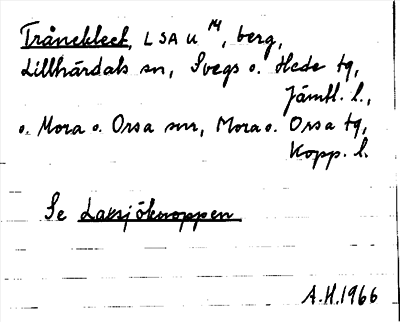 Trånekleck, LSA U 14, berg,
Lillhärdals sn, Svegs o. Hede tg,
Jämtl. l.,
o. Mora o. Orsa snr, Mora o. Orsa tg,
Kopp. l.
Se Laxsjöknoppen
A.H. 1966